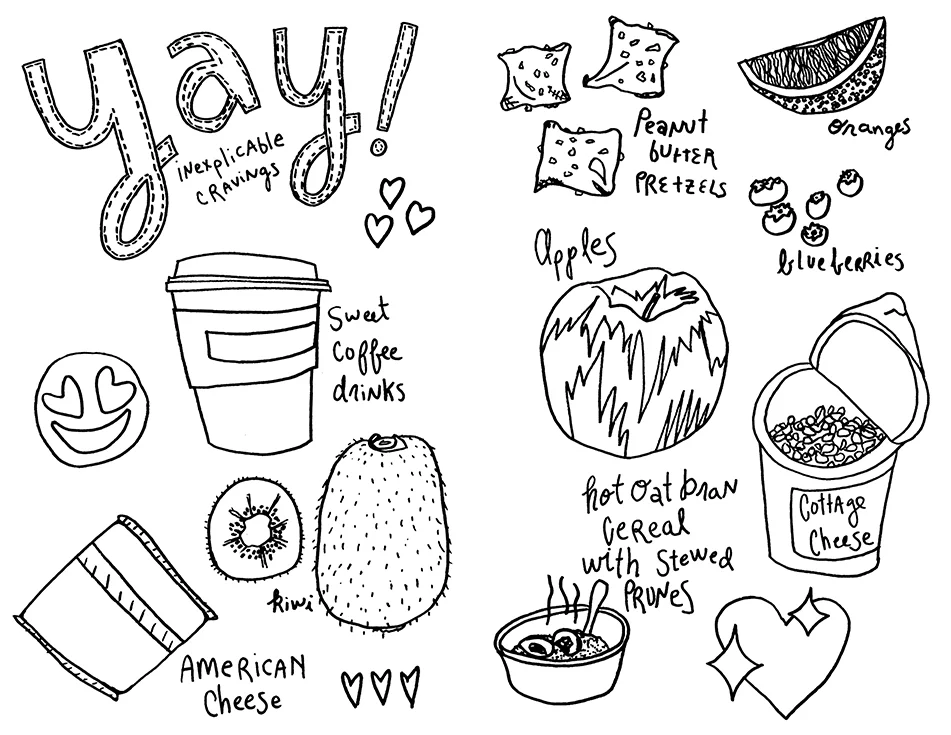 yay!
inexplicable
cravings
Sweet
coffee
drinks
kiwi
AMERICAN
Cheese
Peanut
butter
PRETZELS
oranges
blueberries
Apples
hot oat bran
cereal
with stewed
PRUNES
Cottage
Cheese